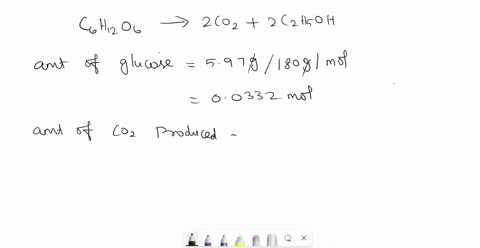 C₆H₁₂O₆ → 2CO₂ + 2C₂H₅OH
amt of glucose = 5.97g/180g/mol
= 0.0332 mol
amt of CO₂ produced -